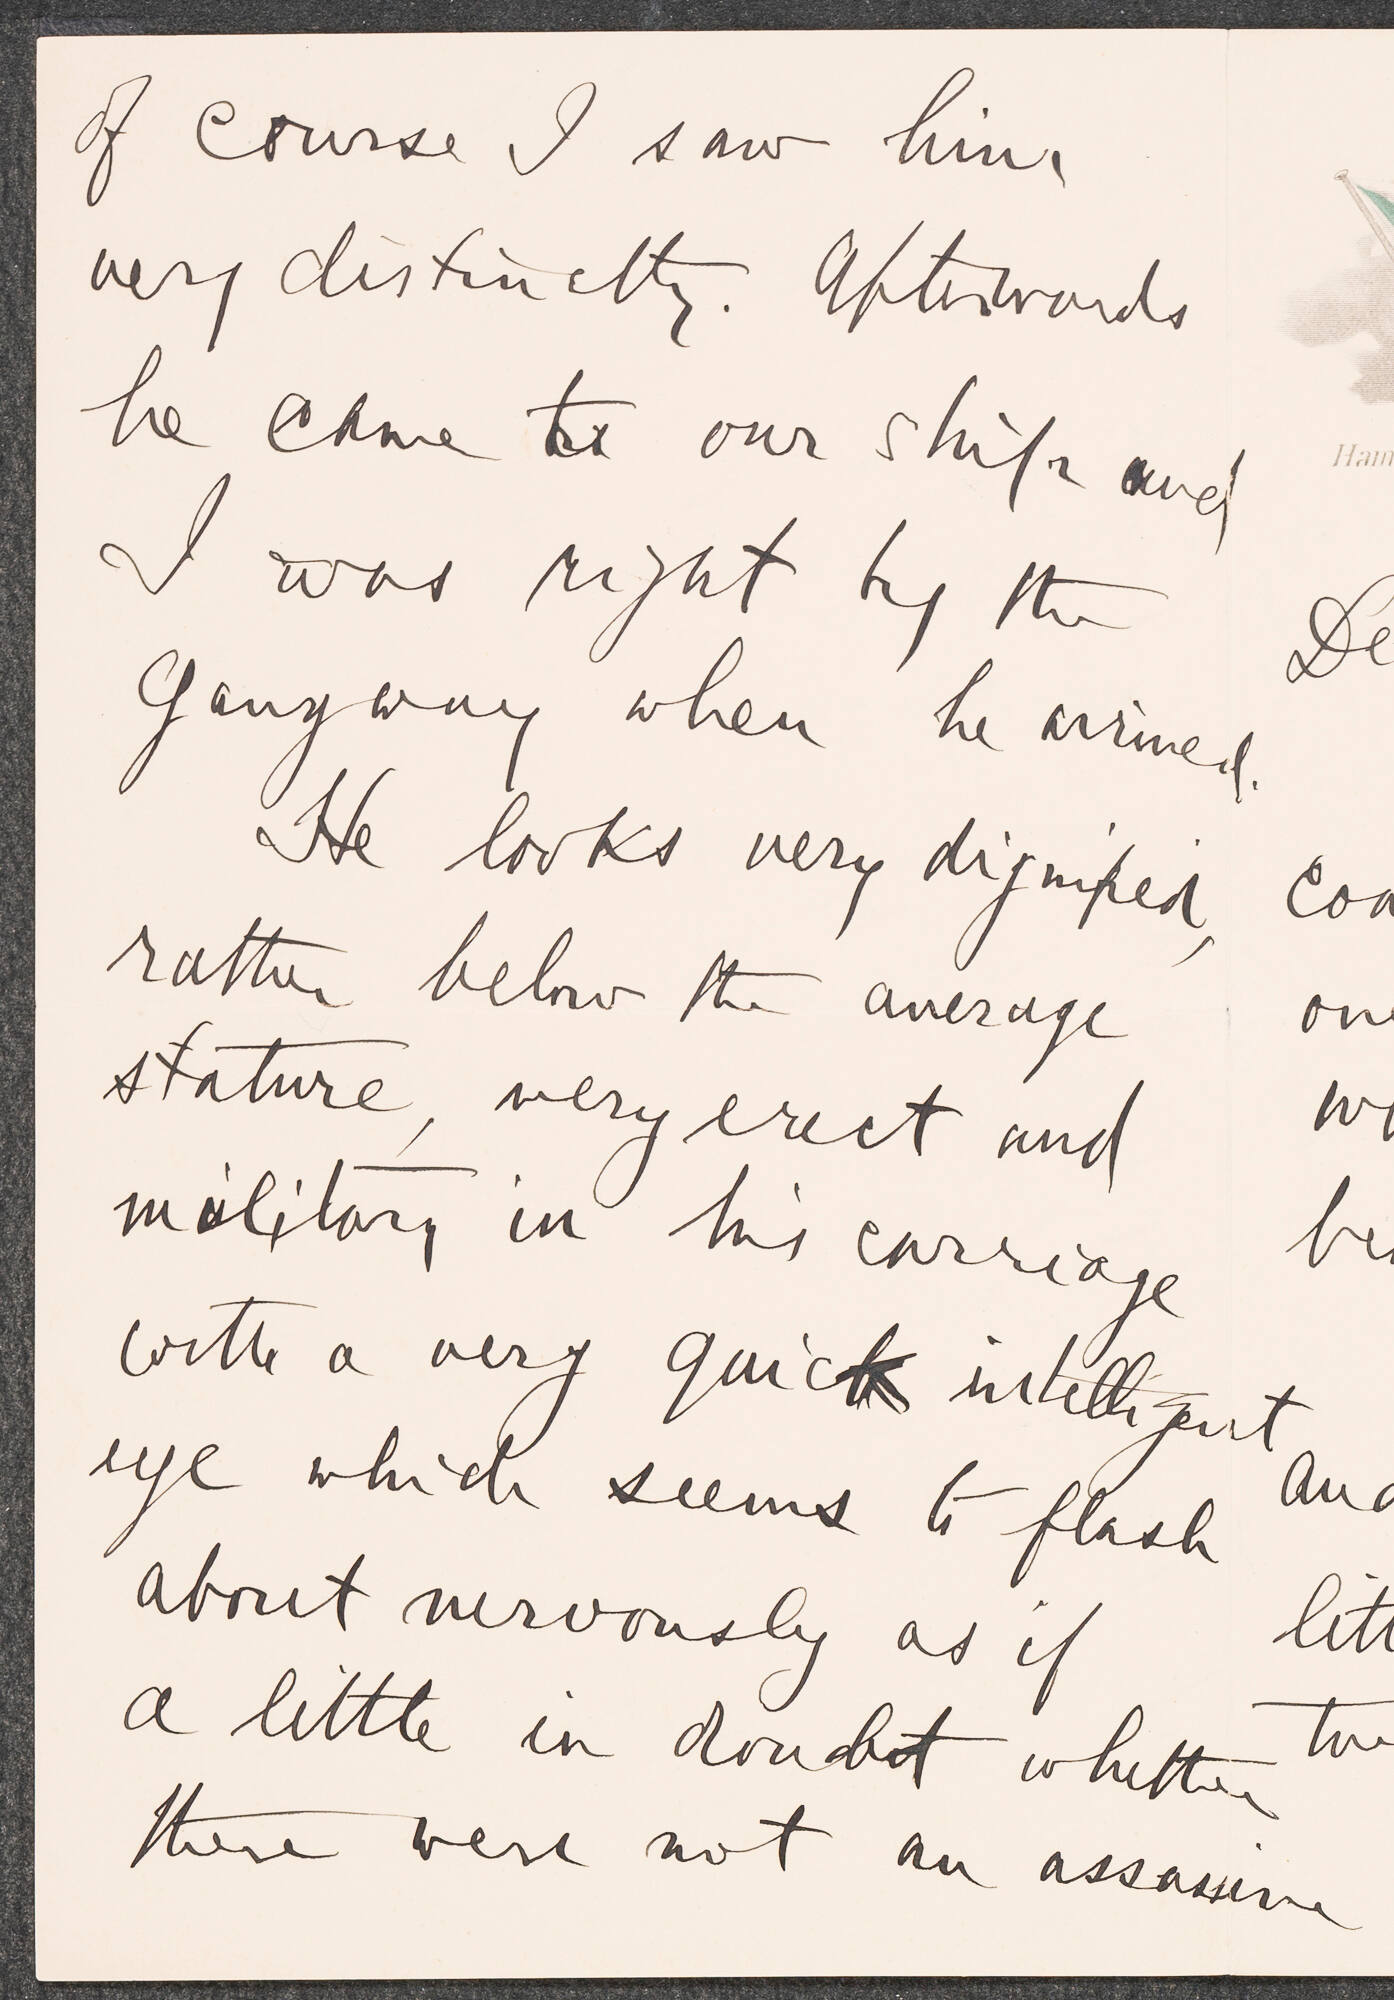 of course I saw him
very distinctly. Afterwards
he came to our ship and
I was right by the
gangway when he arrived.
He looks very dignified,
rather below the average
stature, very erect and
military in his carriage
with a very quick intelligent
eye which seems to flash
about nervously as if
a little in doubt whether
there were not an assassin
Ham
De
coa
one
wa
be
and
litt